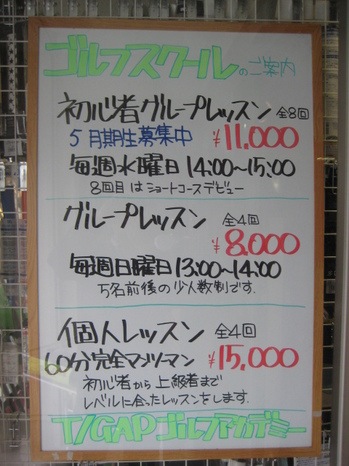 ゴルフスクールのご案内
初心者グループレッスン 全8回
5月期生募集中 ¥11,000
毎週水曜日 14:00～15:00
8回目はショートコースデビュー
グループレッスン 全4回
¥8,000
毎週日曜日 13:00～14:00
5名前後の少人数制です.
個人レッスン 全4回
60分完全マンツーマン ¥15,000
初心者から上級者まで
レベルに合ったレッスンをします.
T/GAPゴルフアカデミー